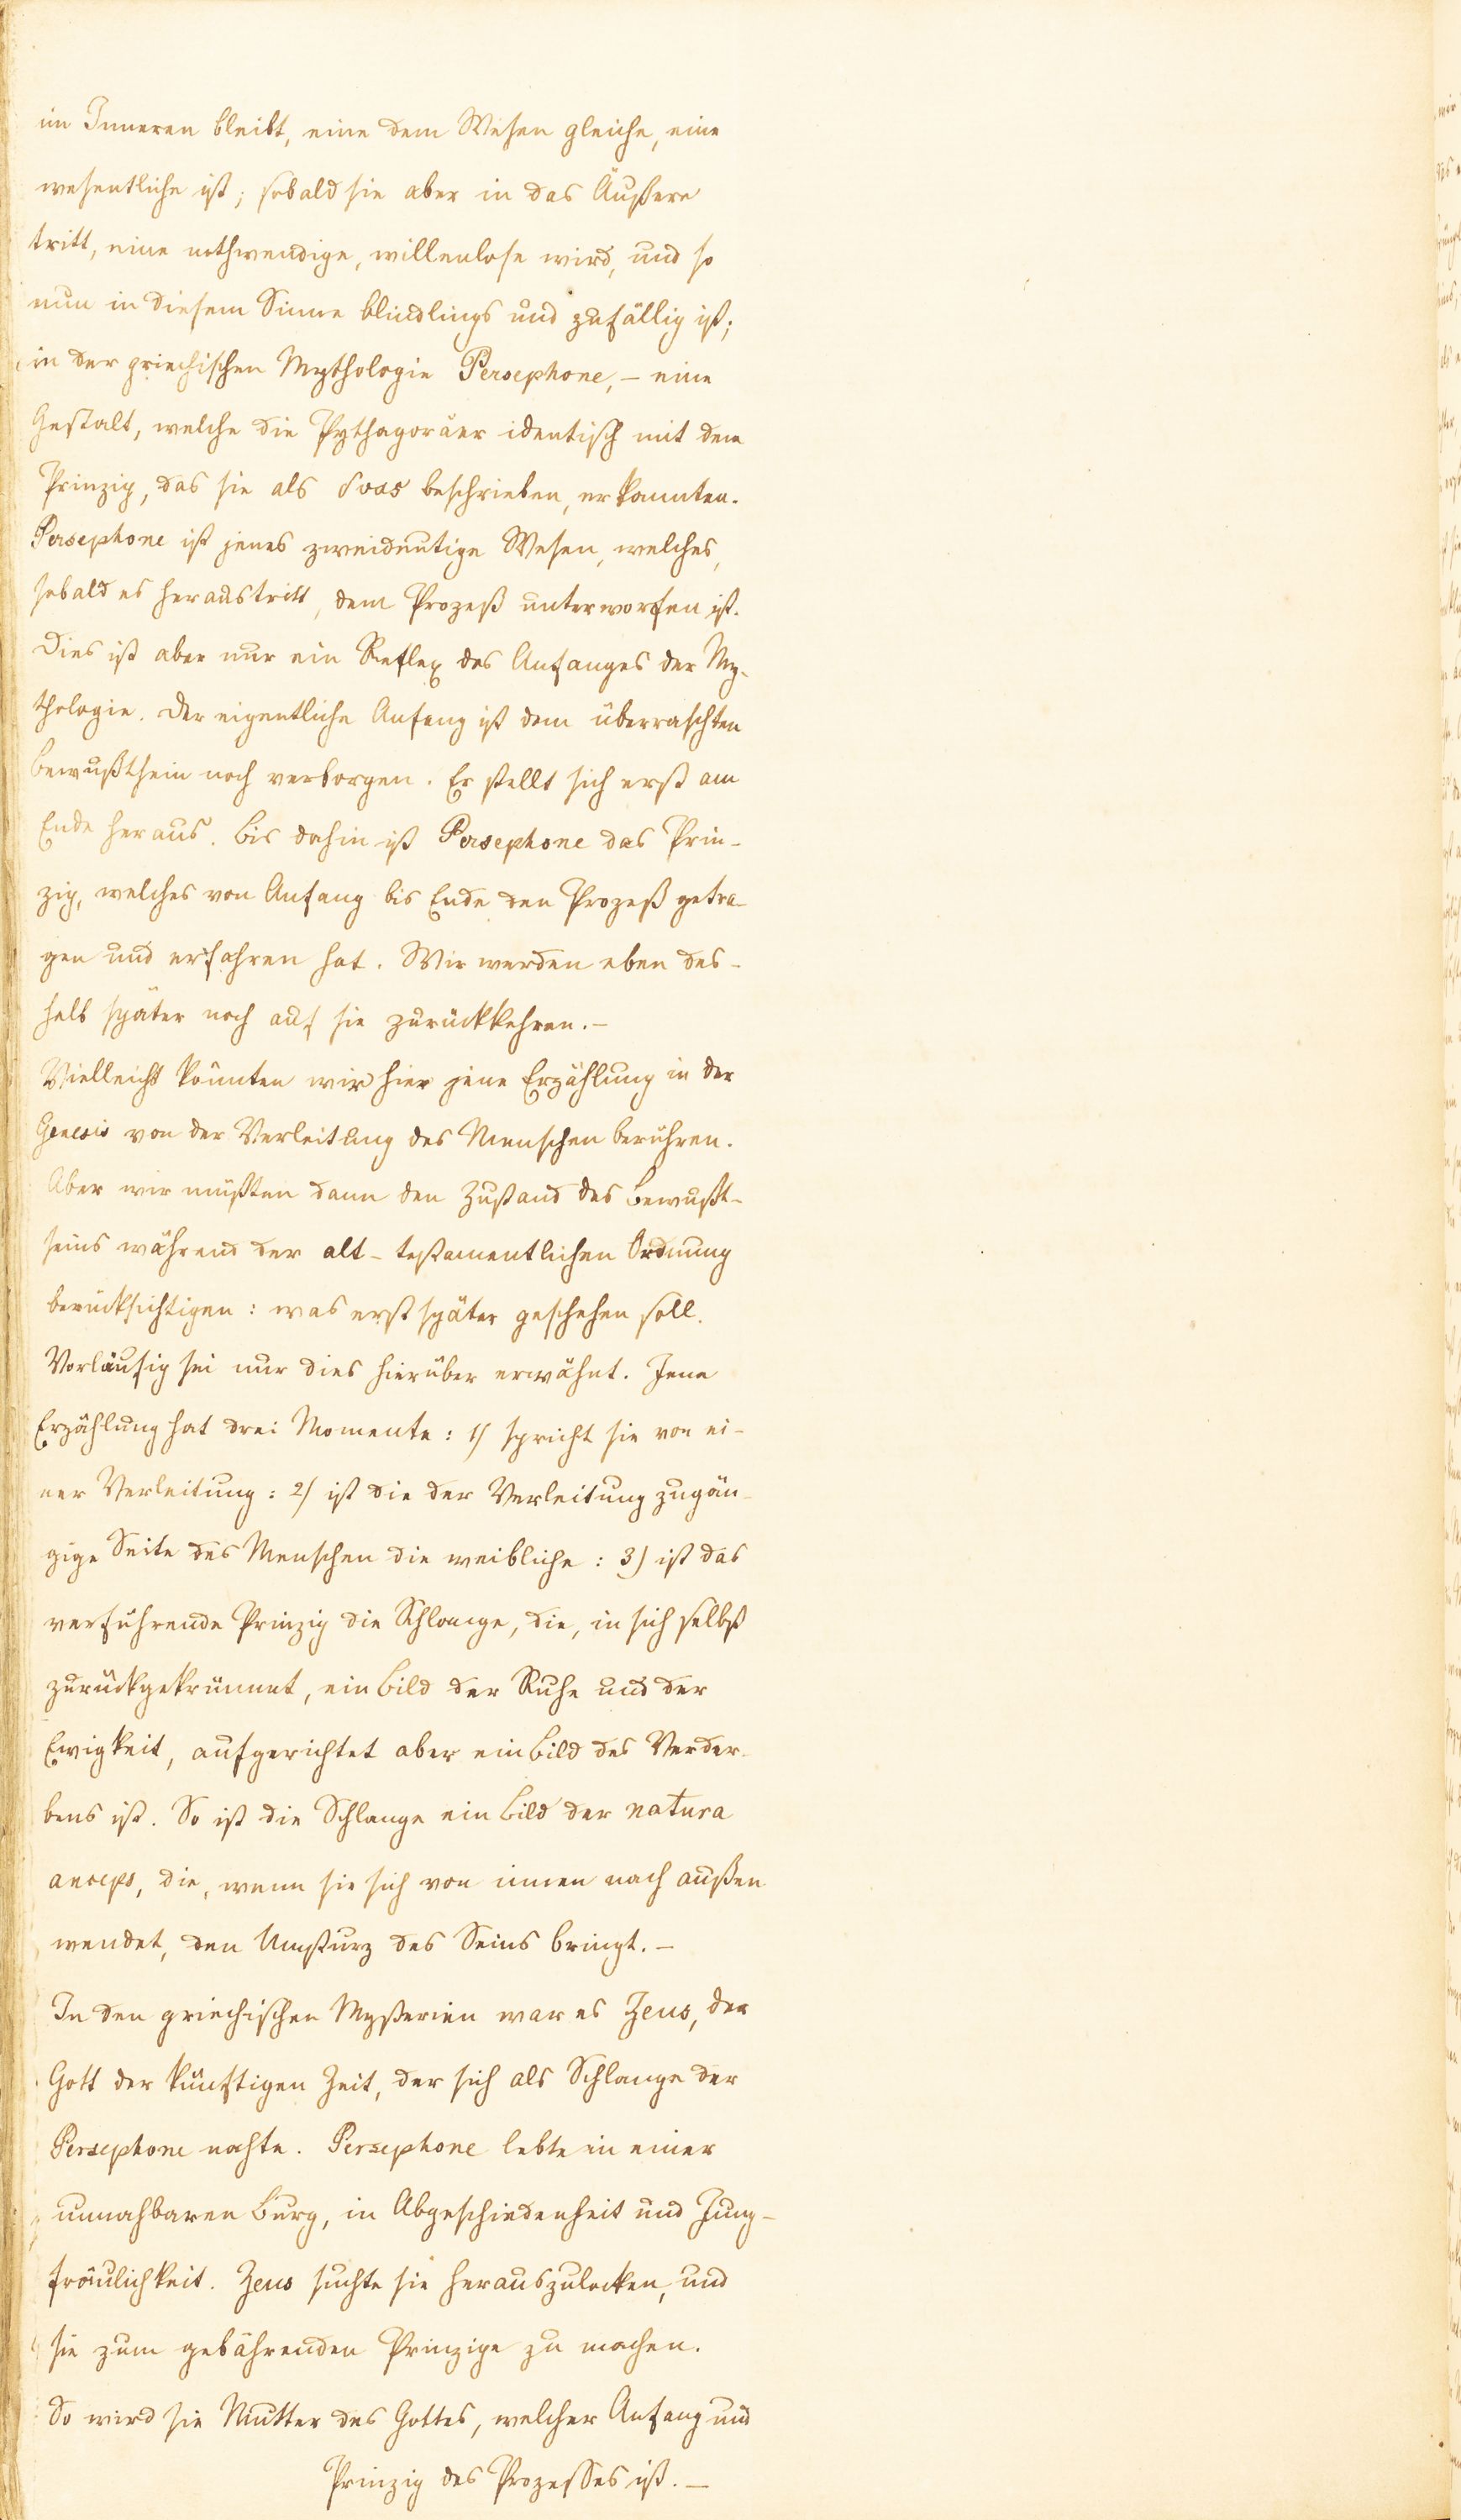 im Inneren bleibt, eine dem Wesen gleiche, eine
wesentliche ist; sobald sie aber in das Äußere
tritt, eine nothwendige, willenlose wird, und so
nun in diesem Sinne blindlings und zufällig ist;
in der griechischen Mythologie Persephone, – eine
Gestalt, welche die Pythagoräer identisch mit dem
Prinzip, das sie als δυας beschrieben, erkannten.
Persephone ist jenes zweideutige Wesen, welches,
sobald es heraustritt, dem Prozeß unterworfen ist.
Dies ist aber nur ein Reflex des Anfanges der My-
thologie. Der eigentliche Anfang ist dem überraschten
Bewußtsein noch verborgen. Er stellt sich erst am
Ende heraus. Bis dahin ist Persephone das Prin-
zip, welches von Anfang bis Ende den Prozeß getra-
gen und erfahren hat. Wir werden eben des-
halb später noch auf sie zurückkehren. –
Vielleicht könnten wir hier jene Erzählung in der
Genesis von der Verleitung des Menschen berühren.
Aber wir müßten dann den Zustand des Bewußt-
seins während der alt-testamentlichen Ordnung
berücksichtigen: was erst später geschehen soll.
Vorläufig sei nur dies hierüber erwähnt. Jene
Erzählung hat drei Momente: 1) spricht sie von ei-
ner Verleitung: 2) ist die der Verleitung zugän-
gige Seite des Menschen die weibliche: 3) ist das
verführende Prinzip die Schlange, die, in sich selbst
zurückgekrümmt, ein Bild der Ruhe und der
Ewigkeit, aufgerichtet aber ein Bild des Verder-
bens ist. So ist die Schlange ein Bild der natura
anceps, die, wenn sie sich von innen nach außen
wendet, den Umsturz des Seins bringt. –
In den griechischen Mysterien war es Zeus, der
Gott der künftigen Zeit, der sich als Schlange der
Persephone nahte. Persephone lebte in einer
unnahbaren Burg, in Abgeschiedenheit und Jung-
fräulichkeit. Zeus suchte sie herauszulocken, und
sie zum gebährenden Prinzipe zu machen.
So wird sie Mutter des Gottes, welcher Anfang und
Prinzip des Prozesses ist. –